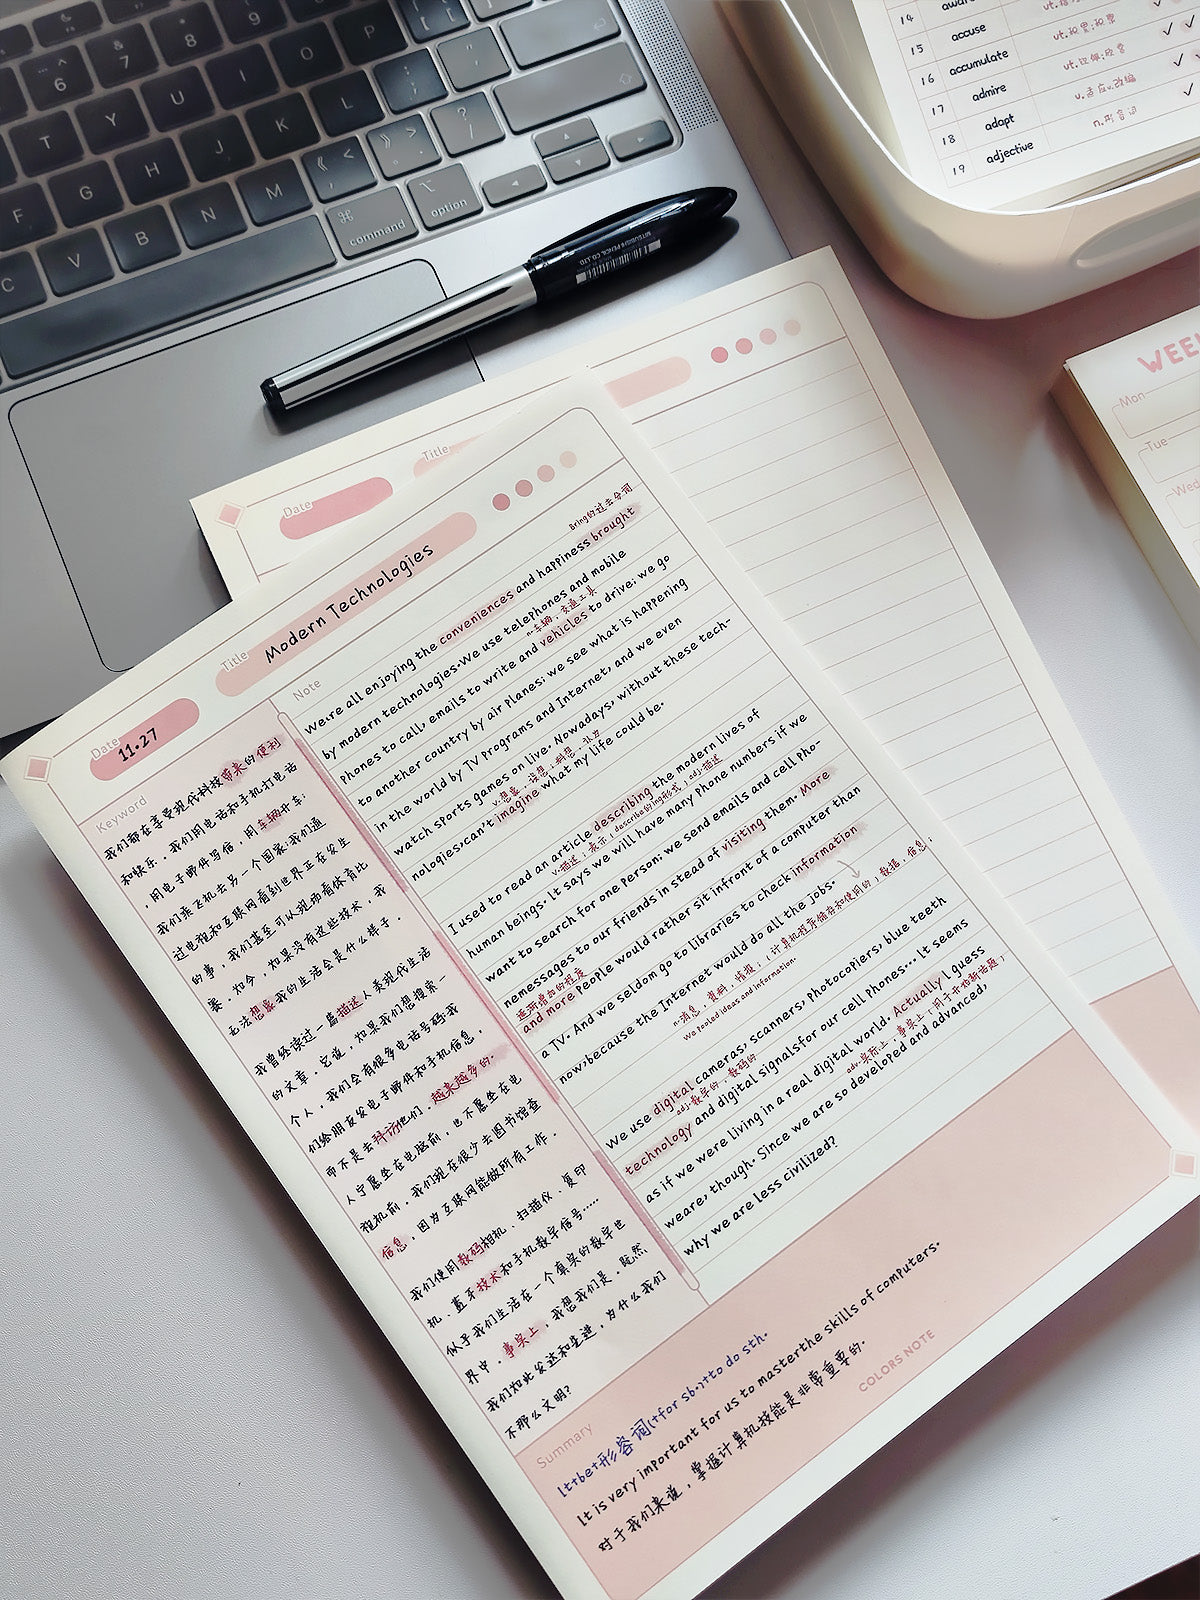 &
7
*
8
(
9
6
T
Y
U
I
O
P
G
H
J
K
L
F
C
V
B
N
M
《 <
》 >
? /
⌘
command
⌥
option
MITSUBISHI PENCIL CO.LTD
14
15 accuse
16 accumulate
17 admire
18 adapt v.适应,改编
19 adjective n.形容词
Mon
Tue
Wed
Date
Title
Date 11.27
Title Modern Technologies
Keyword
我们都在享受现代科技带来的便利
和快乐。我们用电话和手机打电话
,用电子邮件写信,用车辆开车;
我们乘飞机去另一个国家;我们通
过电视和互联网看到世界正在发生
的事,我们甚至可以现场看体育比
赛。如今,如果没有这些技术,我
无法想象我的生活会是什么样子。
我曾经读过一篇描述人类现代生活
的文章。它说,如果我们想搜索一
个人,我们会有很多电话号码;我
们给朋友发电子邮件和手机信息,
而不是去拜访他们。越来越多的
人宁愿坐在电脑前,也不愿坐在电
视机前。我们现在很少去图书馆查
信息,因为互联网能做所有工作。
我们使用数码相机、扫描仪、复印
机、蓝牙技术和手机数字信号……
似乎我们生活在一个真实的数字世
界中。事实上,我想我们是。既然
我们如此发达和先进,为什么我们
不那么文明?
Note
Bring的过去分词
We're all enjoying the conveniences and happiness brought
by modern technologies. We use telephones and mobile
n.车辆,交通工具
phones to call, emails to write and vehicles to drive; we go
to another country by air planes; we see what is happening
in the world by TV programs and Internet, and we even
watch sports games on live. Nowadays, without these tech-
v.想象,设想;料想,认为
nologies, can't imagine what my life could be.
I used to read an article describing the modern lives of
v.描述;表示(describe的ing形式)adj.描述
human beings. It says we will have many phone numbers if we
want to search for one person; we send emails and cell pho-
nemessages to our friends in stead of visiting them. More
逐渐增加的程度
and more people would rather sit infront of a computer than
a TV. And we seldom go to libraries to check information
now, because the Internet would do all the jobs.
n.消息,资料,情报;(计算机程序储存和使用的)数据,信息;
We pooled ideas and information.
We use digital cameras, scanners, photocopiers, blue teeth
adj.数字的,数码的
technology and digital signalsfor our cell phones... It seems
as if we were living in a real digital world. Actually I guess
adv.实际上,事实上(用于开始新话题)
weare, though. Since we are so developed and advanced,
why we are less civilized?
Summary
It+be+形容词(+for sb.)+to do sth.
It is very important for us to masterthe skills of computers.
对于我们来说,掌握计算机技能是非常重要的.
COLORS NOTE